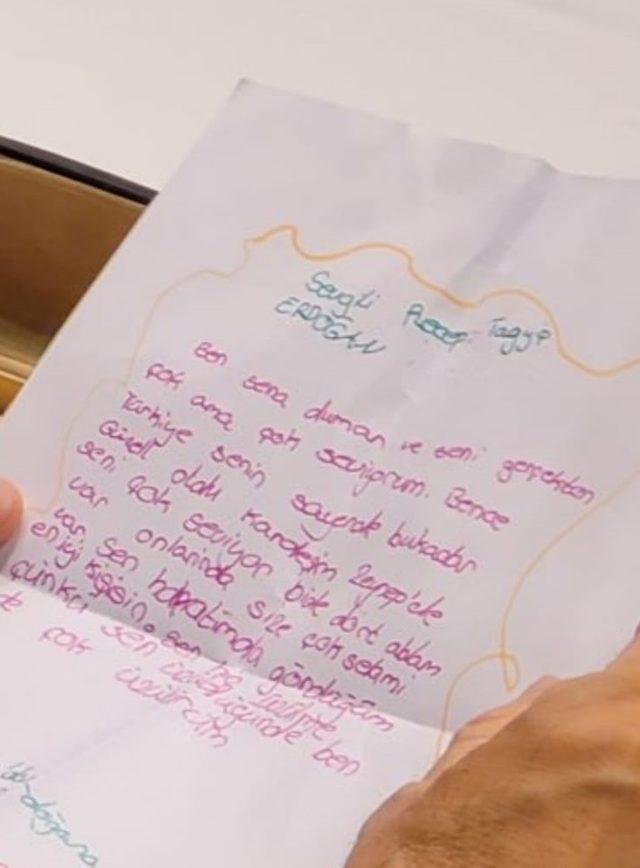 Sevgili Recep Tayyip
ERDOĞAN
Ben Sena duman ve seni gerçekten
çok ama çok seviyorum. Bence
Türkiye senin sayende bukadar
Güzel olalı Kardeşim Zeynep'de
seni çok seviyor birde dört ablam
var onlarında size çok selamı
var. Sen hayatımda gördüğüm
en iyi kişisin. Sen hiç üzülme
çünkü sen üzüldüğünde ben
de çok üzülürüm